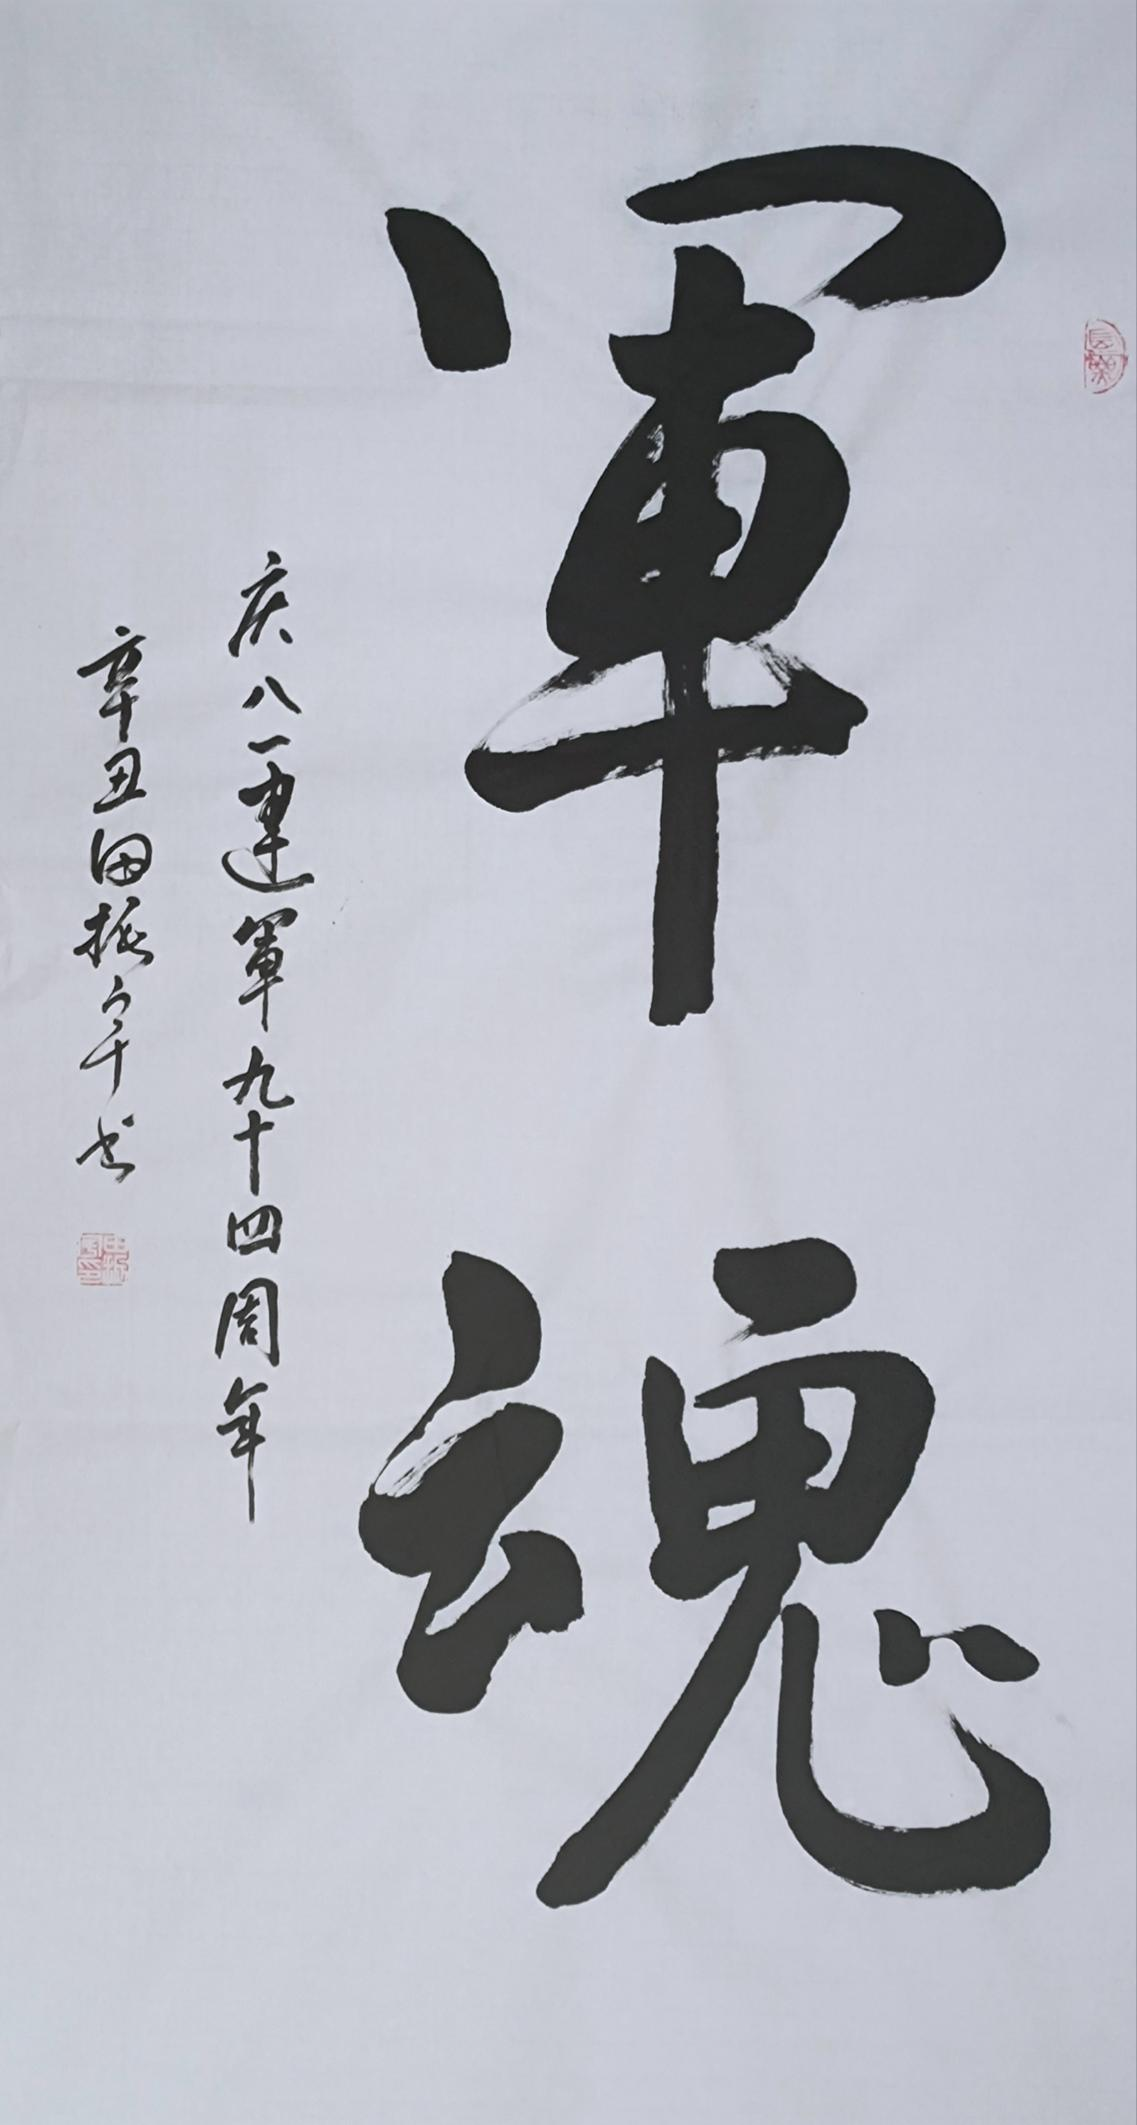 軍魂
庆八一建軍九十四周年
辛丑田振宇书